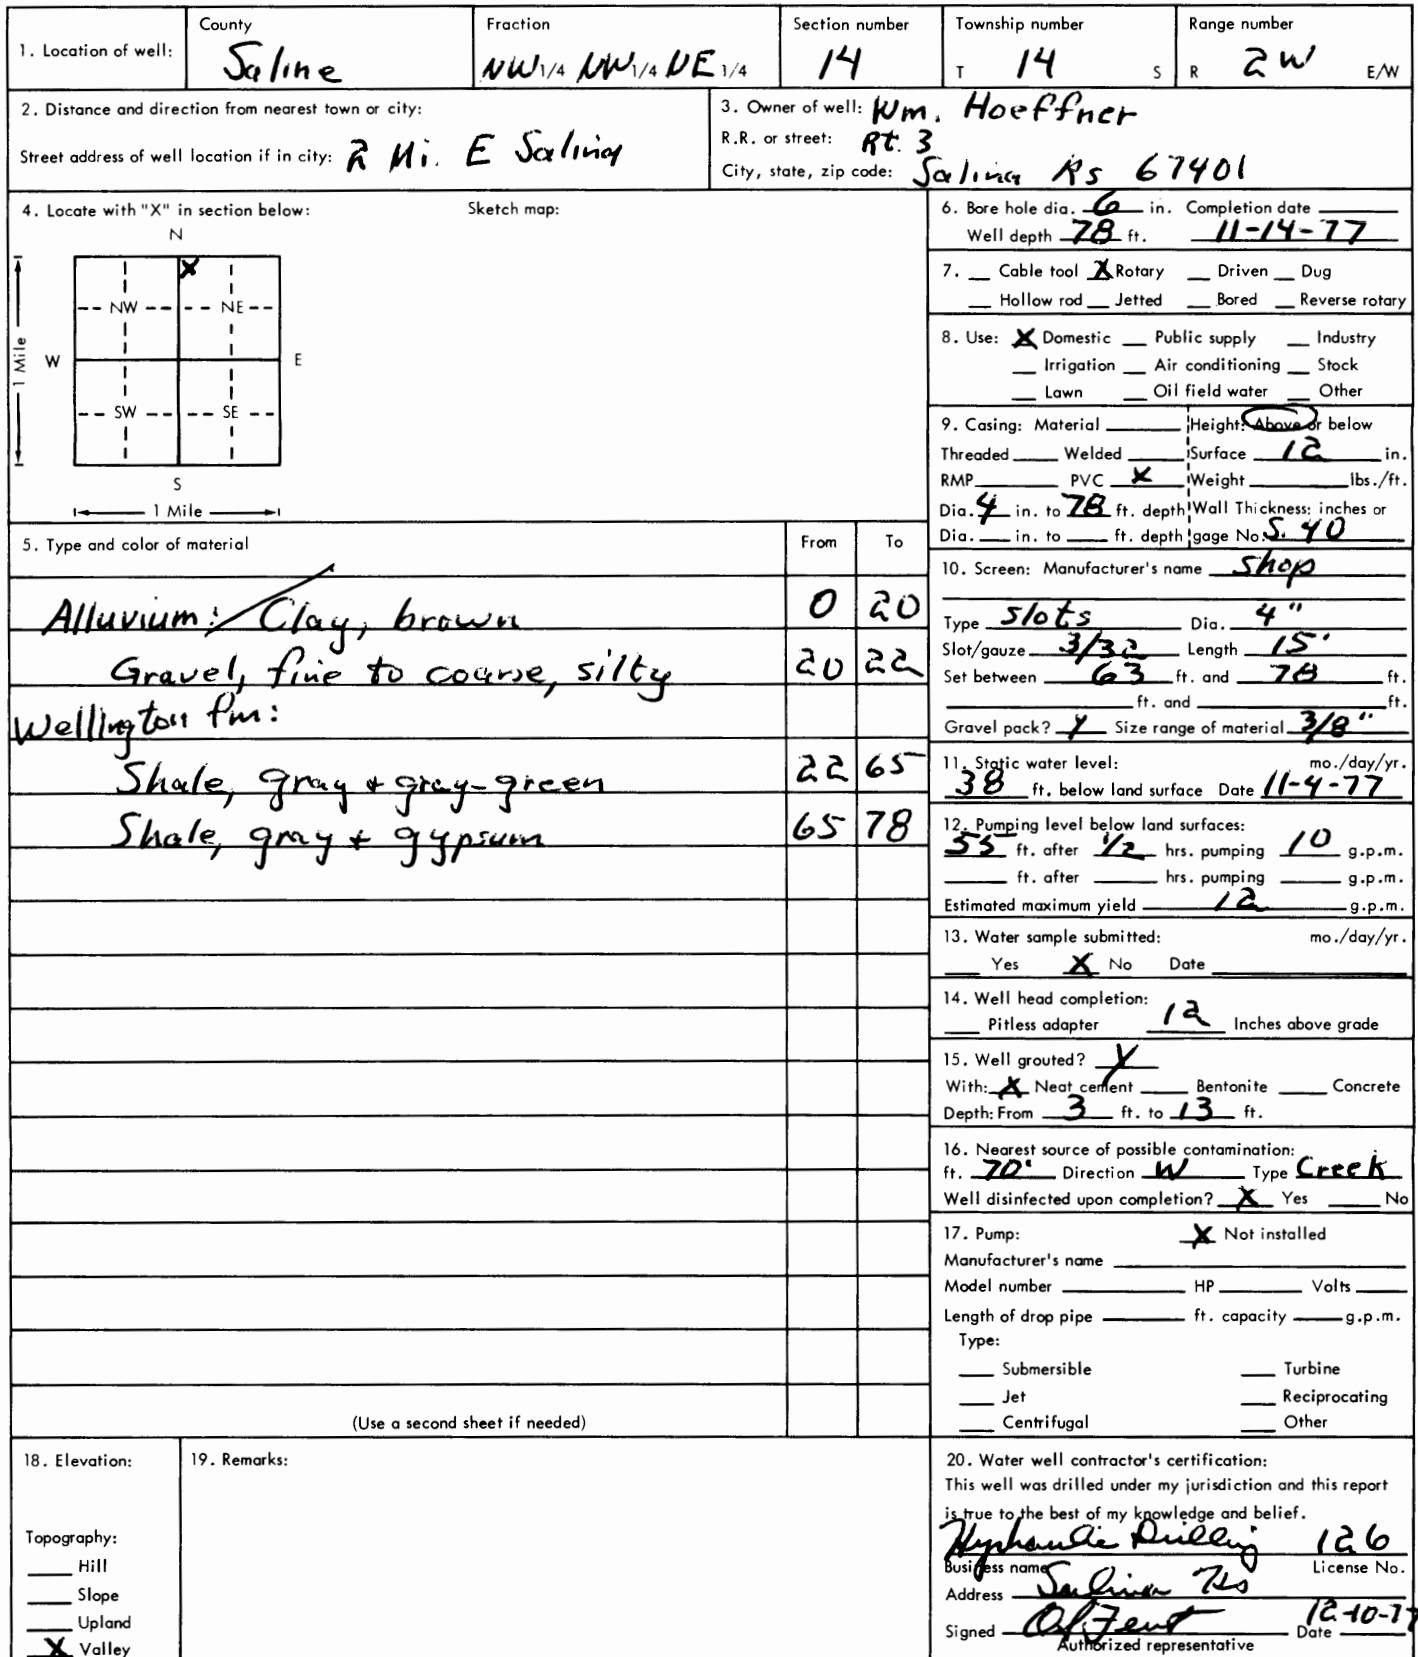 1. Location of well: County Saline Fraction NW 1/4 NW 1/4 NE 1/4 Section number 14 Township number T 14 S Range number R 2 W E/W
2. Distance and direction from nearest town or city:
Street address of well location if in city: 2 Mi. E Salina
3. Owner of well: Wm. Hoeffner
R.R. or street: Rt. 3
City, state, zip code: Salina Ks 67401
4. Locate with "X" in section below: Sketch map:
N
X
NW NE
W E
1 Mile
SW SE
S
1 Mile
5. Type and color of material From To
Alluvium: Clay, brown 0 20
Gravel, fine to coarse, silty 20 22
Wellington fm:
Shale, gray + gray-green 22 65
Shale, gray + gypsum 65 78
(Use a second sheet if needed)
6. Bore hole dia. 6 in. Completion date
Well depth 78 ft. 11-14-77
7. Cable tool X Rotary Driven Dug
Hollow rod Jetted Bored Reverse rotary
8. Use: X Domestic Public supply Industry
Irrigation Air conditioning Stock
Lawn Oil field water Other
9. Casing: Material Height: Above or below
Threaded Welded Surface 12 in.
RMP PVC X Weight lbs./ft.
Dia. 4 in. to 78 ft. depth Wall Thickness: inches or
Dia. in. to ft. depth gage No. S. 40
10. Screen: Manufacturer's name shop
Type slots Dia. 4"
Slot/gauze 3/32 Length 15'
Set between 63 ft. and 78 ft.
ft. and ft.
Gravel pack? Y Size range of material 3/8"
11. Static water level: mo./day/yr.
38 ft. below land surface Date 11-4-77
12. Pumping level below land surfaces:
55 ft. after 1/2 hrs. pumping 10 g.p.m.
ft. after hrs. pumping g.p.m.
Estimated maximum yield 12 g.p.m.
13. Water sample submitted: mo./day/yr.
Yes X No Date
14. Well head completion:
Pitless adapter 12 Inches above grade
15. Well grouted? Y
With: X Neat cement Bentonite Concrete
Depth: From 3 ft. to 13 ft.
16. Nearest source of possible contamination:
ft. 70' Direction W Type Creek
Well disinfected upon completion? X Yes No
17. Pump: X Not installed
Manufacturer's name
Model number HP Volts
Length of drop pipe ft. capacity g.p.m.
Type:
Submersible Turbine
Jet Reciprocating
Centrifugal Other
18. Elevation:
Topography:
Hill
Slope
Upland
X Valley
19. Remarks:
20. Water well contractor's certification:
This well was drilled under my jurisdiction and this report
is true to the best of my knowledge and belief.
Drilling 126
Business name License No.
Address Salina Ks
Signed Date 12-10-77
Authorized representative